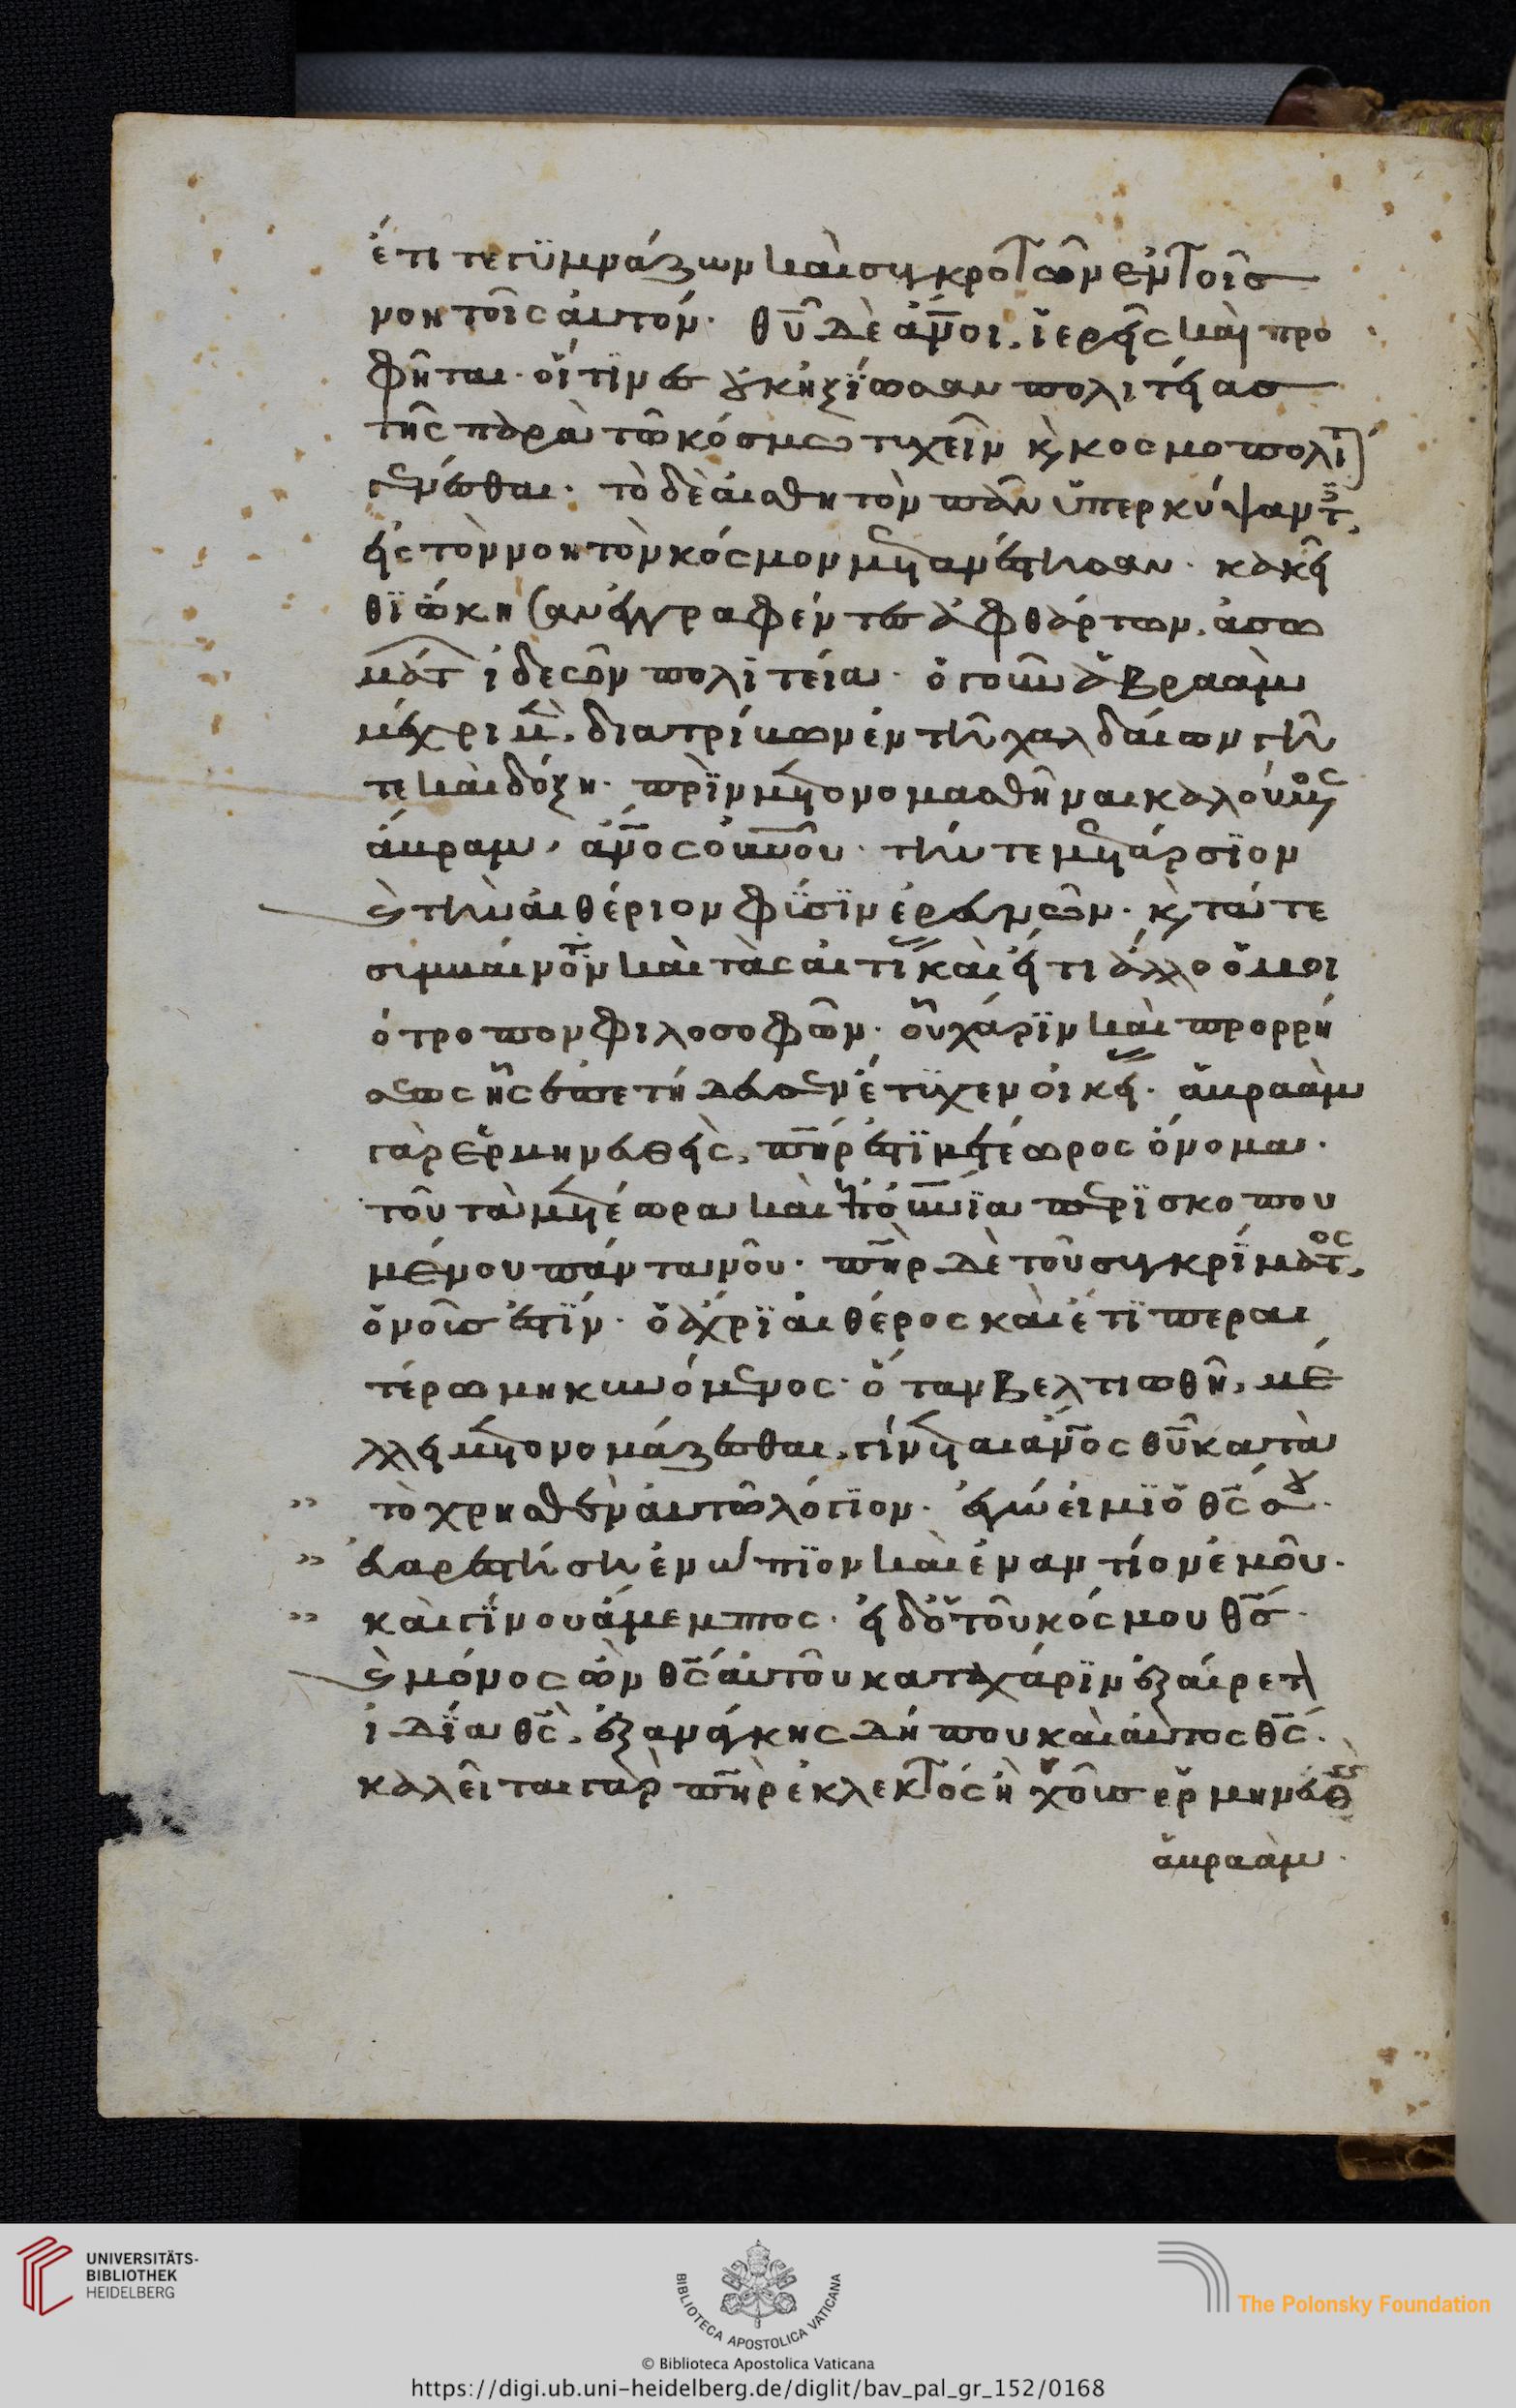 ἔτι τε γϋμνάζων καὶ συγκροτῶν ἐν τοῖς
νοητοῖς αὐτόν· θῦ δὲ ἄνοι, ἱερεῖς καὶ προ
φῆται· οἵτινες οὐκ ἠξίωσαν πολιτείασ
τῆς παρὰ τῶ κόσμω τυχεῖν κ κοσμοπολῖτ
γενέσθαι· τὸ δὲ αἰσθητὸν πᾶν ὑπερκύψαντ,
εἰς τὸν νοητὸν κόσμον μετανέστησαν· κἀκεῖ
θϊ ὤκησαν ἐγγραφέντες ἀφθάρτων, ἀσω
μάτ ἰδεῶν πολιτεία· ὁ γοῦν ἀβραὰμ
μέχρι μ, διατρίβων ἐν τῆ χαλδαίων γῆ
τε καὶ δόξη· πρὶν μετονομασθῆναι καλούμος
ἄβραμ, ἄνος οὐνοῦ· τήν τε μετάρσϊον
κ τὴν αἰθέριον φύσϊν ἐρευνῶν· κ τά τε
συμβαίνοντ καὶ τὰς αἰτί καὶ εἴ τι ἄλλο ὅμοι
ότροπον φιλοσοφῶν· οὗ χάρϊν καὶ προρρή
σεως ἧς ἐπετήδευσεν ἔτϋχεν οἰκεί· ἀβραὰμ
γὰρ ἑρμηνευθεὶς, πηρ ἐστϊ μετέωρος ὄνομα·
τοῦ τὰ μετέωρα καὶ ὑπουνία περϊσκοπου
μένου πάντα νοῦ· πηρ δὲ τοῦ συγκρίματος,
ὁ νοῦς ἐστϊν· ὁ ἄχρϊ αἰθέρος καὶ ἔτϊ περαι
τέρω μηκυνόμενος· ὅταν βελτιωθῆ, μέ
λλη μετονομάζεσθαι, γίνεται ἄνος θῦ κατὰ
" τὸ χρησθὲν αὐτῶ λόγϊον· ἐγώ εἰμϊ ὁ θς σου·
" εὐαρέστησιν ἐνώπϊον καὶ ἐναντίον ἐμοῦ·
" καὶ γίνου ἄμεμπτος· εἰ δὲ ὁ τοῦ κόσμου θς·
κ μόνος ὢν θς αὐτοῦ κατὰ χάρϊν ἐξαίρετ
ἰδία θς, ἐξ ἀνάγκης δήπου καὶ αὐτὸς θς·
καλεῖται γὰρ πηρ ἐκλεκτὸς ἠχοῦς ἑρμηνευθ
ἀβραάμ·
UNIVERSITÄTS-
BIBLIOTHEK
HEIDELBERG
BIBLIOTECA APOSTOLICA VATICANA
The Polonsky Foundation
© Biblioteca Apostolica Vaticana
https://digi.ub.uni-heidelberg.de/diglit/bav_pal_gr_152/0168